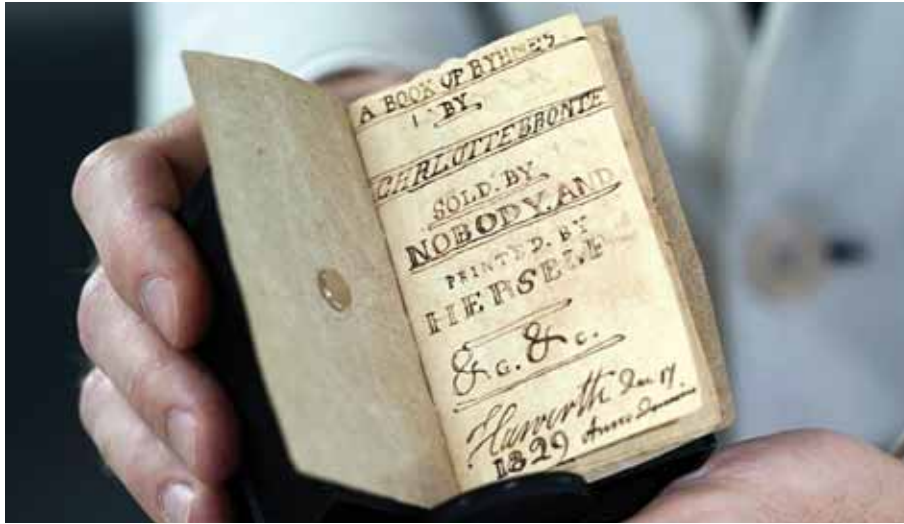 A BOOK OF RYHMES
BY
CHARLOTTE BRONTE
SOLD. BY.
NOBODY. AND
PRINTED. BY
HERSELF
&c. &c.
Haworth Dec. 17
1829 Anno Domini